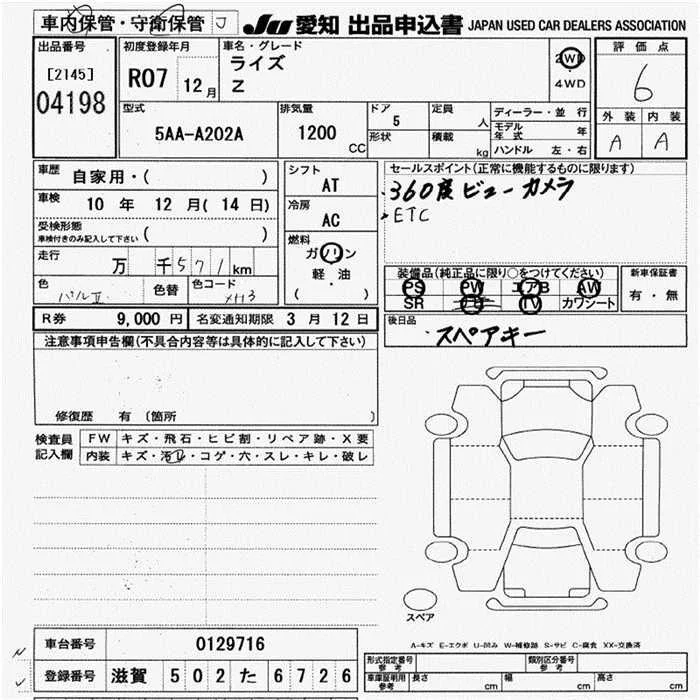 車内保管・守衛保管 J JU 愛知 出品申込書 JAPAN USED CAR DEALERS ASSOCIATION
出品番号 初度登録年月 車名・グレード 評価点
[2145] R07 12月 ライズ 2WD 6
04198 Z 4WD
型式 排気量 ドア 定員 ディーラー・並行 外装 内装
5AA-A202A 1200 CC 5 人 モデル年式 年 A A
形状 積載 kg ハンドル 左・右
車歴 自家用・( ) シフト AT セールスポイント(正常に機能するものに限ります)
車検 10年 12月(14日) 冷房 AC ・360度ビューカメラ
受検形態 車検付きのみ記入して下さい ( ) ・ETC
走行 万 千571km 燃料 ガソリン 軽・油 ( )
装備品(純正品に限り○をつけてください) 新車保証書
PS PW エアB AW 有・無
色 パールⅡ 色替 色コード SR TV カワシート
R券 9,000円 名変通知期限 3月12日 後日品
・スペアキー
注意事項申告欄(不具合内容等は具体的に記入して下さい)
修復歴 有 〔箇所 〕
検査員記入欄 FW キズ・飛石・ヒビ割・リペア跡・X要
内装 キズ・汚レ・コゲ・穴・スレ・キレ・破レ
スペア
車台番号 0129716
A-キズ E-エクボ U-凹み W-補修跡 S-サビ C-腐食 XX-交換済
登録番号 滋賀 502 た 6726
形式指定番号 参考 類別区分番号 参考
車庫証明用 参考 長さ cm 幅 cm 高さ cm